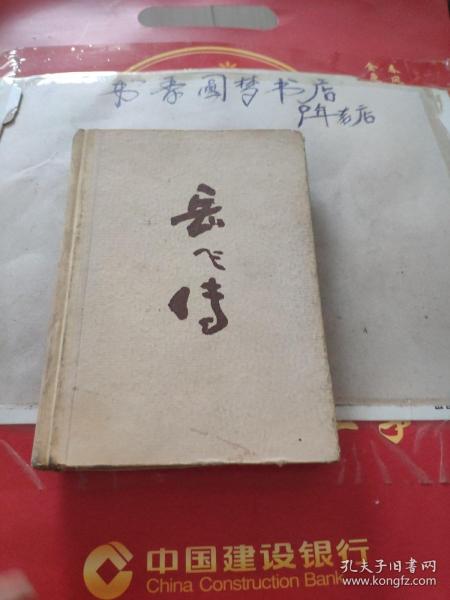 书香圆梦书店
9年老店
岳飞传
中国建设银行
China Construction Bank
孔夫子旧书网
www.kongfz.com